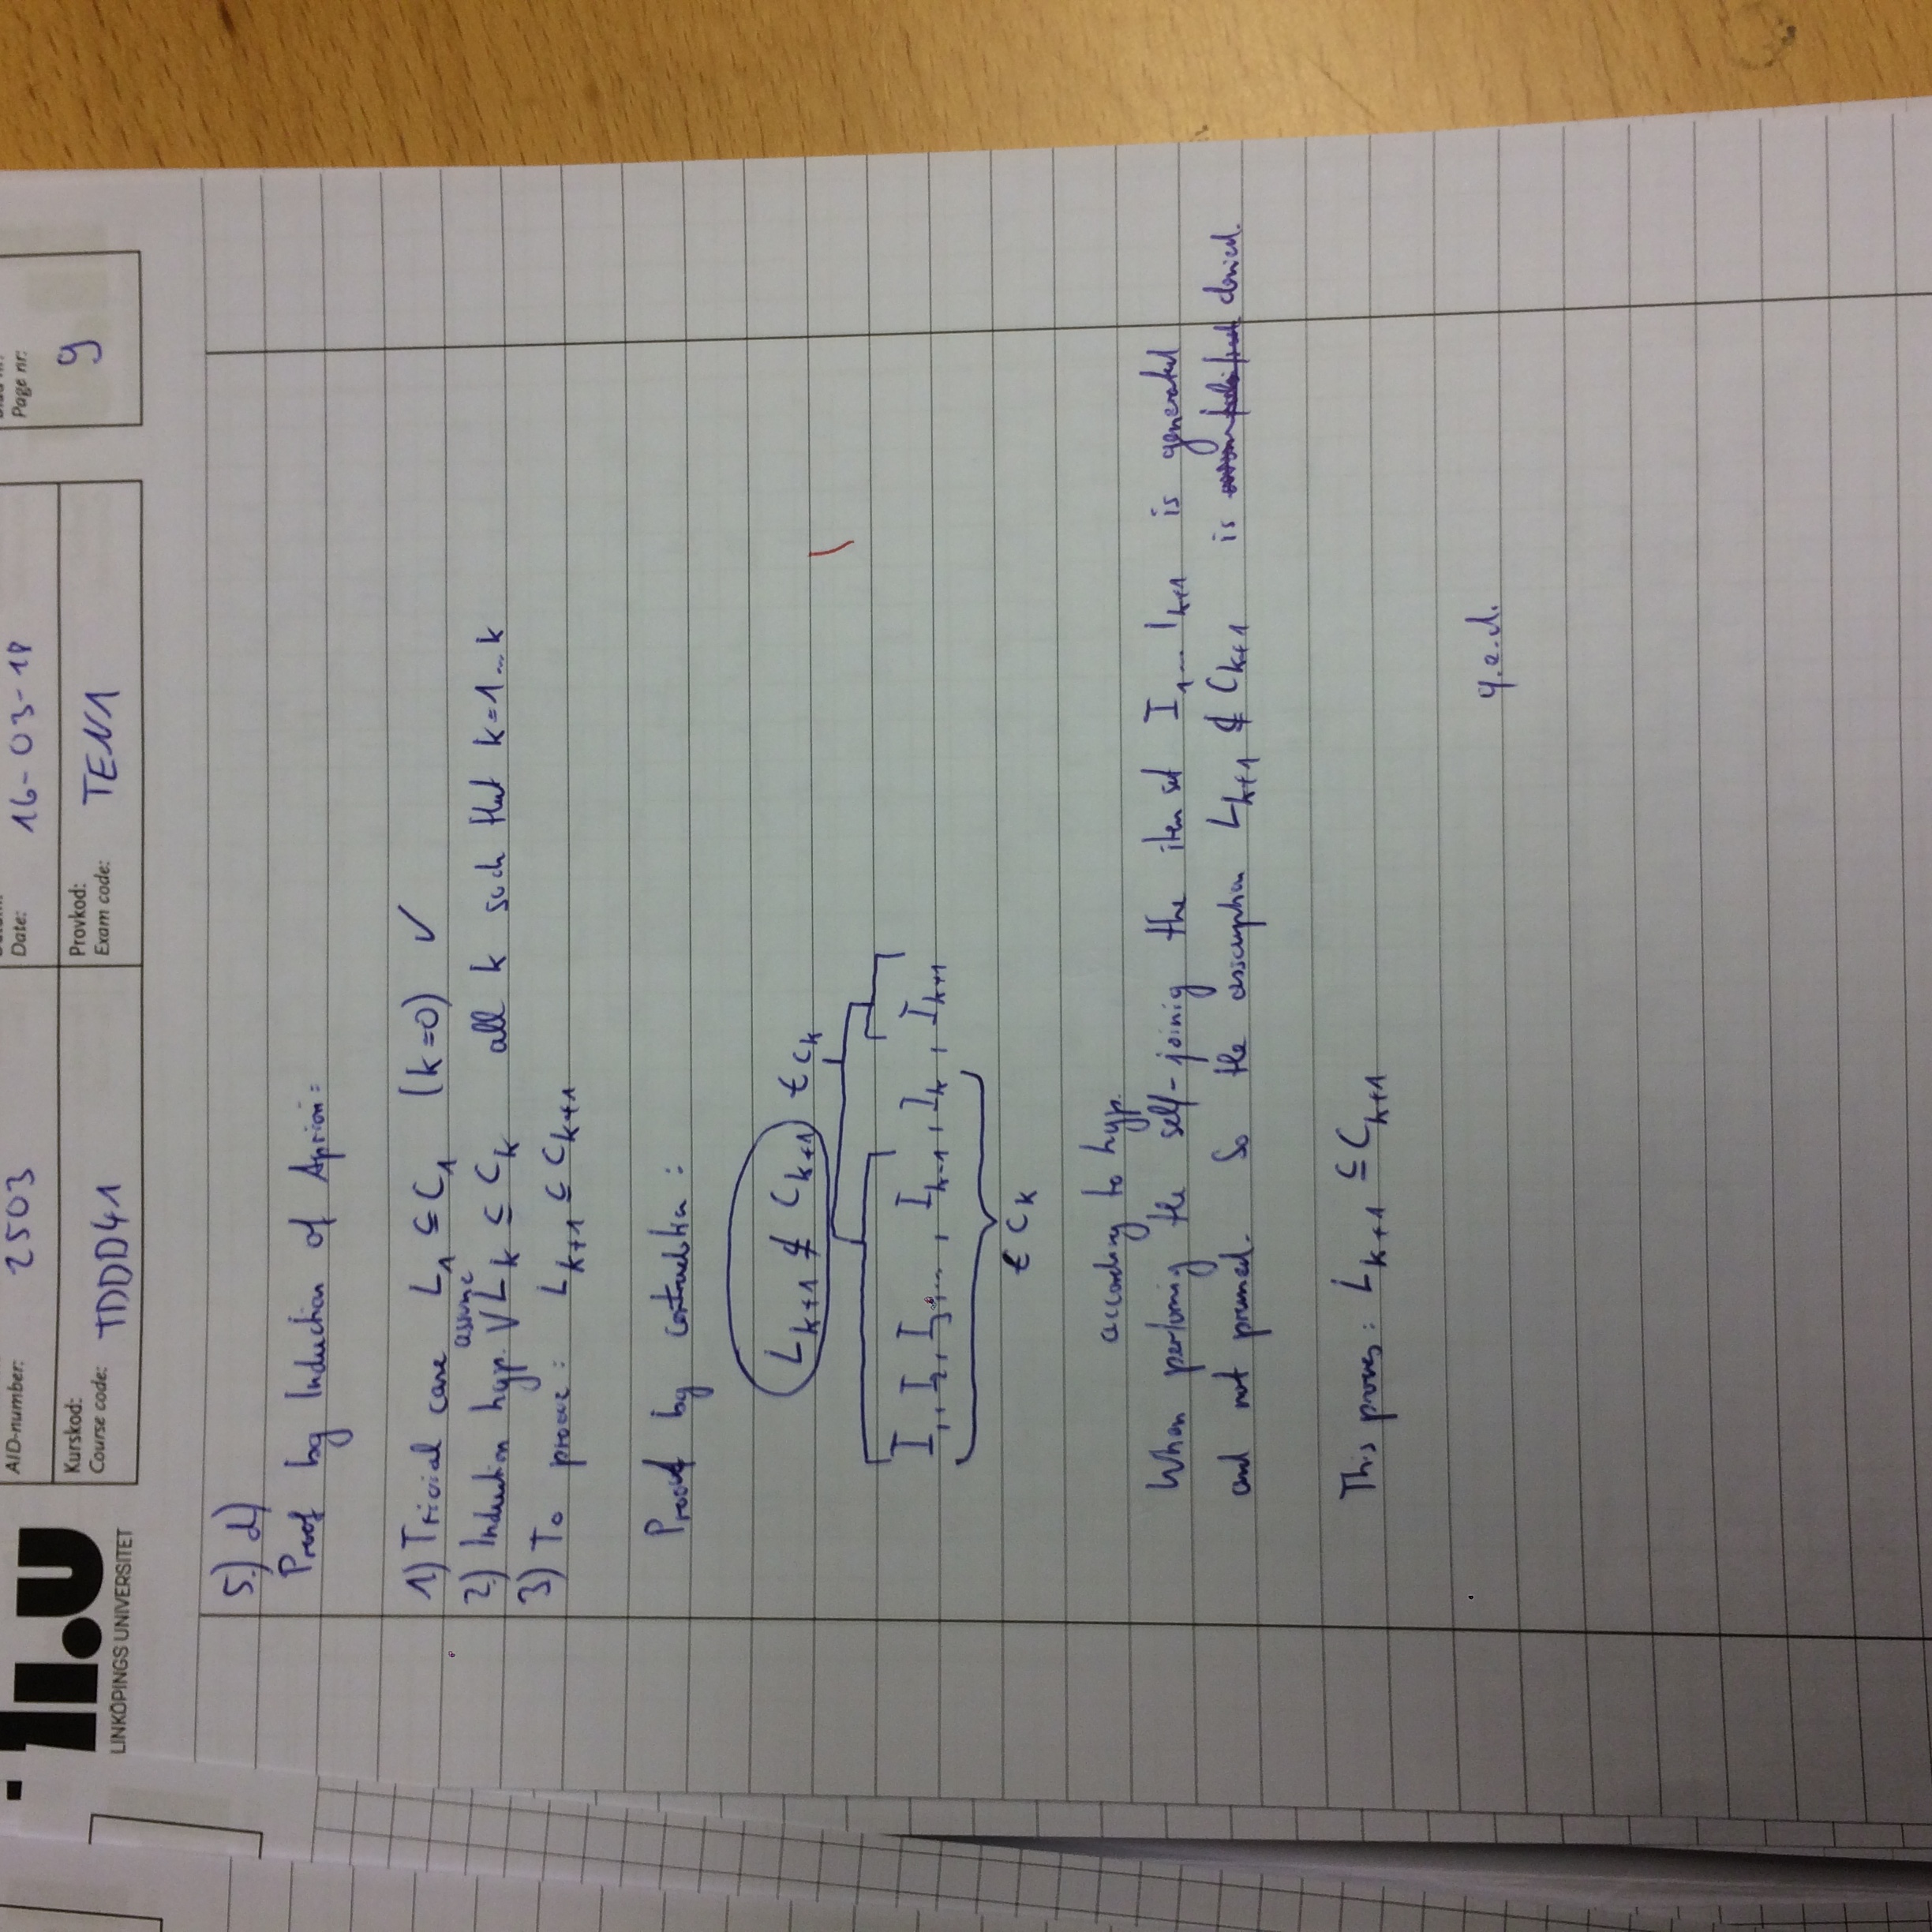 AID-number: 2503
Date: 16-03-18
Page nr: 9
li.u
LINKÖPINGS UNIVERSITET
Kurskod:
Course code: TDDD41
Provkod:
Exam code: TEN1
5.) d)
Proof by Induction of Apriori:
1) Trivial case L₁ ⊆ C₁ (k=0) ✓
assume
2.) Induction hyp. V Lₖ ⊆ Cₖ all k such that k=1...k
3) To prove: Lₖ₊₁ ⊆ Cₖ₊₁
Proof by contradiction:
Lₖ₊₁ ⊈ Cₖ₊₁ ∈ Cₖ
I₁, I₂, I₃, ..., Iₖ₋₁, Iₖ, Iₖ₊₁
∈ Cₖ
according to hyp.
When performing the self-joinig the item set I₁... Iₖ₊₁ is generated
and not pruned. So the assumption Lₖ₊₁ ⊈ Cₖ₊₁ is denied.
This proves: Lₖ₊₁ ⊆ Cₖ₊₁
q.e.d.